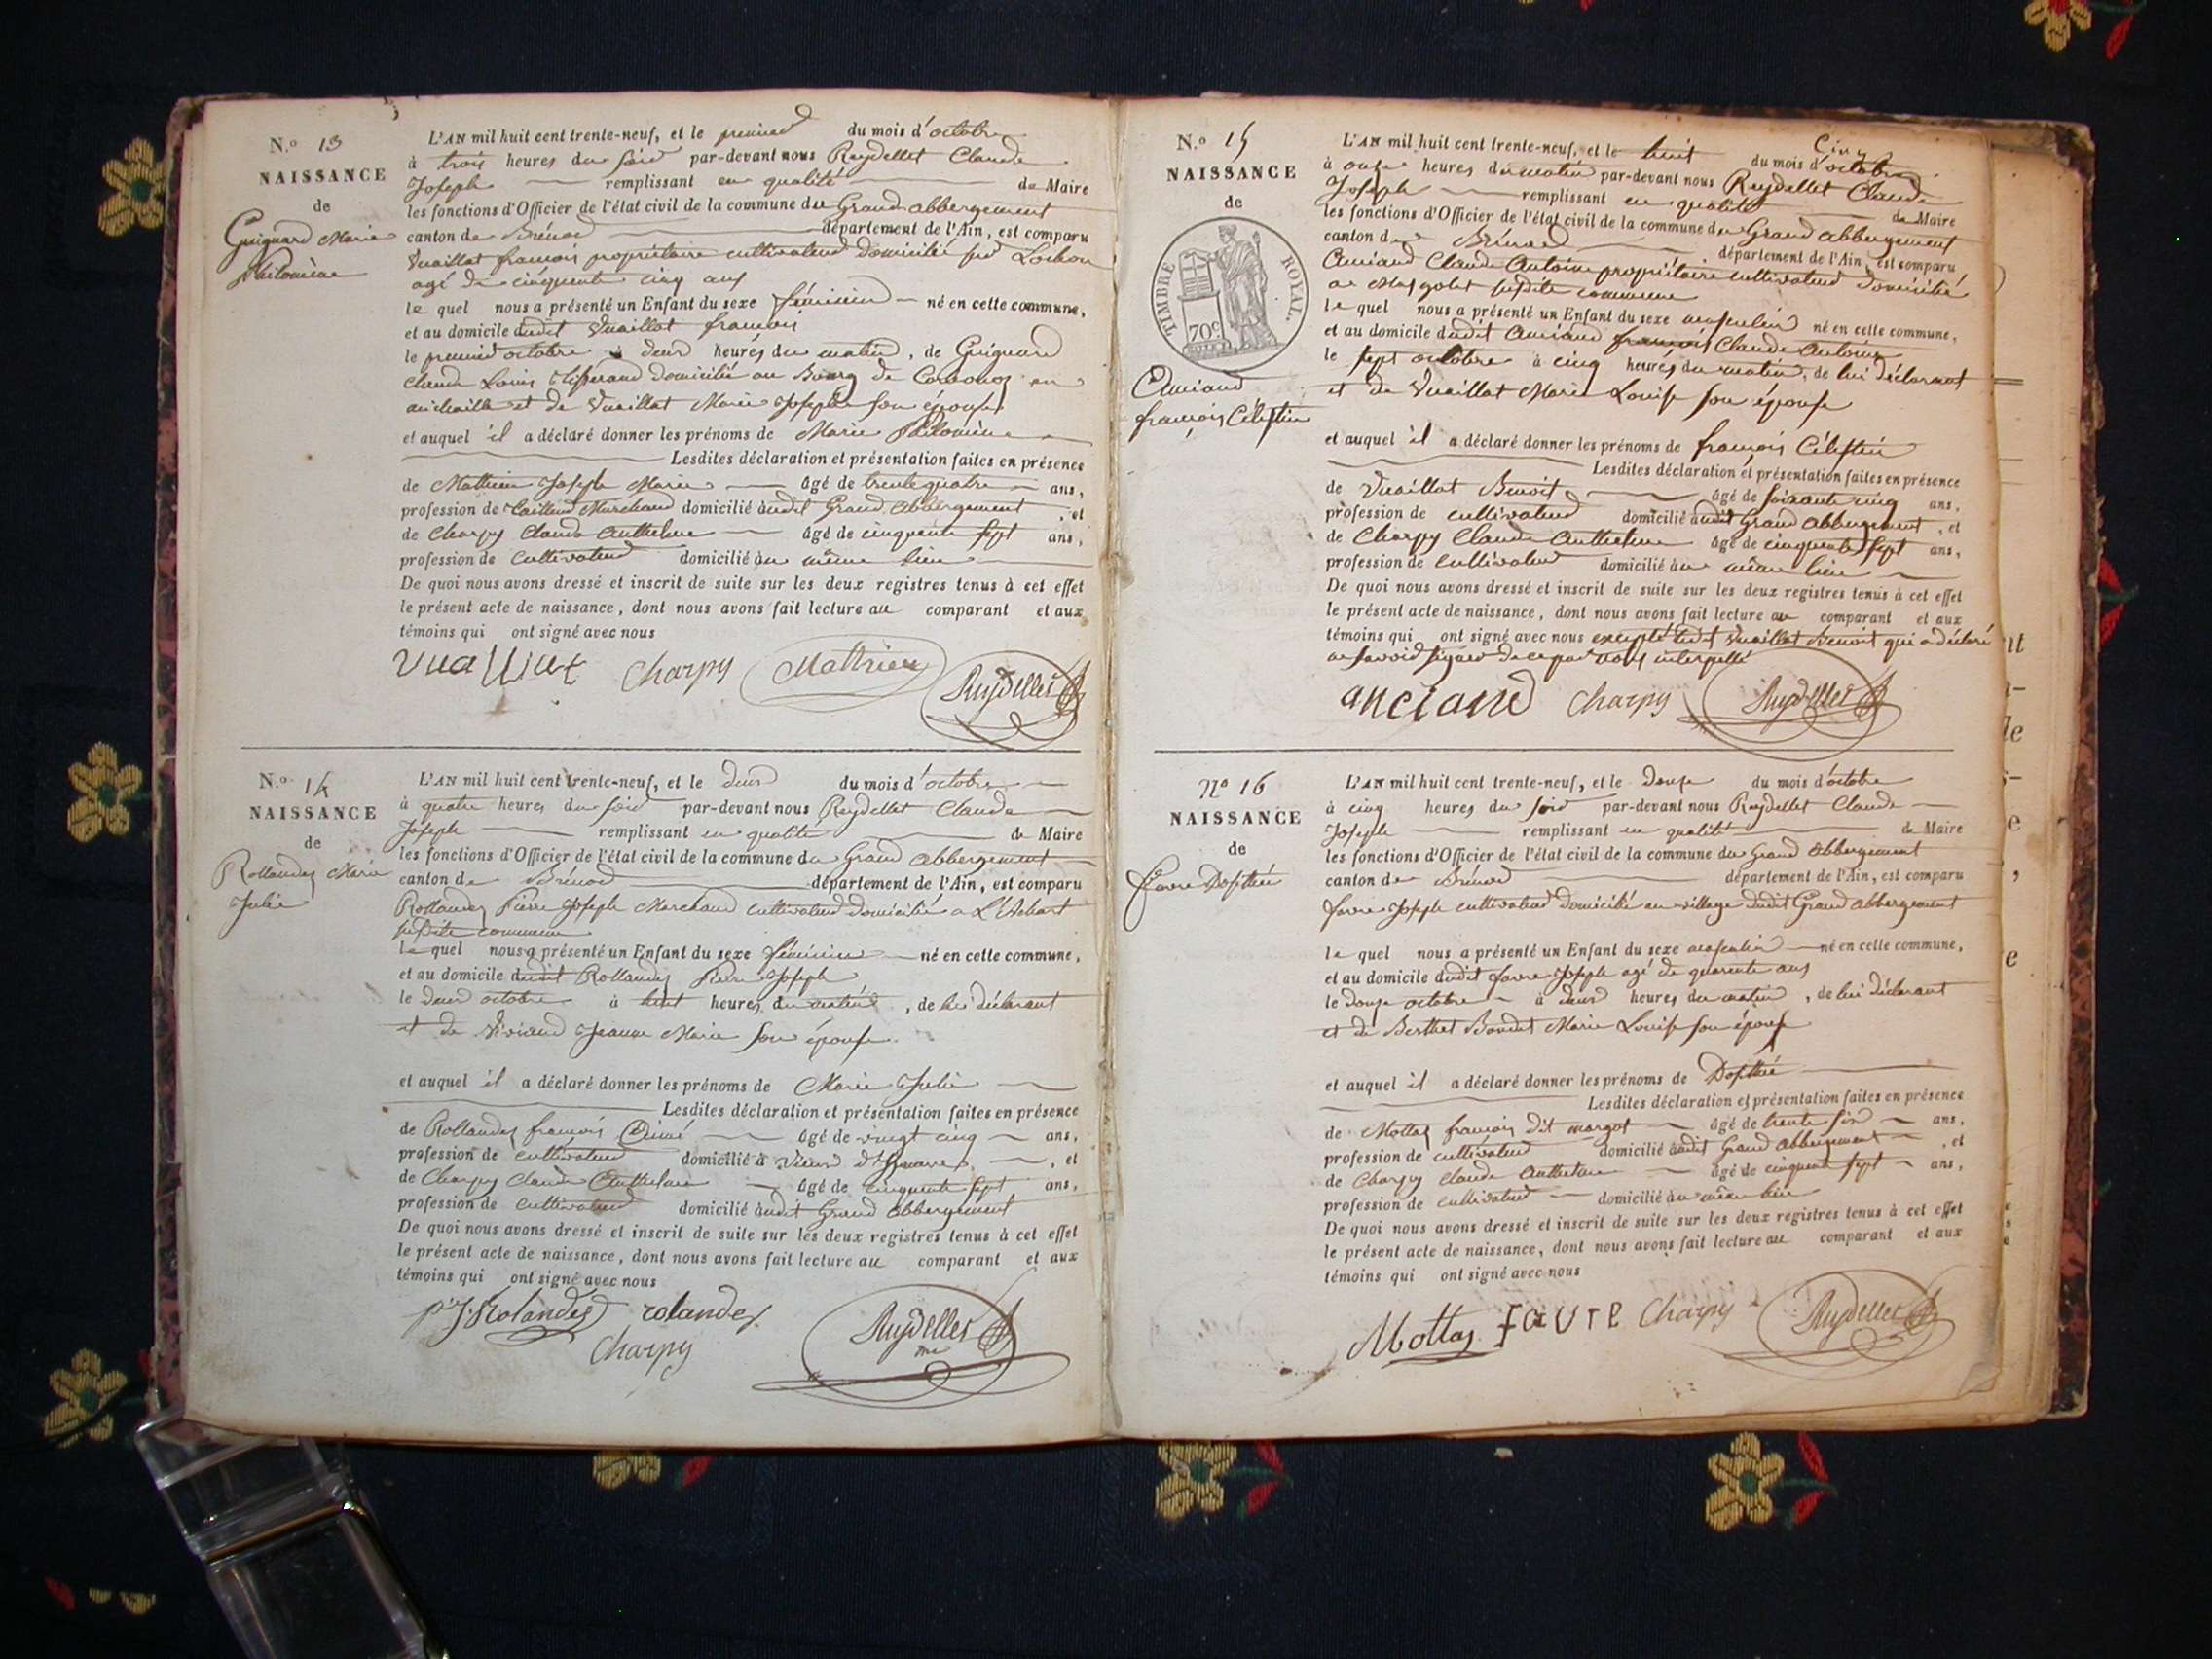 N.º 13
NAISSANCE
de
Guignard Marie
Philomène
L'AN mil huit cent trente-neuf, et le premier du mois d'octobre
à trois heures du soir par-devant nous Reydellet Claude
Joseph remplissant en qualité de Maire
les fonctions d'Officier de l'état civil de la commune du Grand abbergement
canton de Brénod département de l'Ain, est comparu
Vuaillat françois propriétaire cultivateur domicilié sur Lochon
agé de cinquante cinq ans
le quel nous a présenté un Enfant du sexe féminin né en cette commune,
et au domicile dudit Vuaillat françois
le premier octobre à deux heures du matin, de Guignard
Claude Louis Tisserand domicilié au Bourg de
et de Vuaillat Marie Josephe son épouse
et auquel il a déclaré donner les prénoms de Marie Philomène
Lesdites déclaration et présentation faites en présence
de Mathieu Joseph Marie âgé de trente quatre ans,
profession de Tailleur Marchand domicilié audit Grand Abbergement, et
de Charpy Claude Anthelme âgé de cinquante sept ans,
profession de cultivateur domicilié au même lieu
De quoi nous avons dressé et inscrit de suite sur les deux registres tenus à cet effet
le présent acte de naissance, dont nous avons fait lecture au comparant et aux
témoins qui ont signé avec nous
Charpy Mathieu Reydellet
N.º 14
NAISSANCE
de
Rollandez Marie
Julie
L'AN mil huit cent trente-neuf, et le deux du mois d'octobre
à quatre heures du soir par-devant nous Reydellet Claude
Joseph remplissant en qualité de Maire
les fonctions d'Officier de l'état civil de la commune du Grand abbergement
canton de Brénod département de l'Ain, est comparu
Rollandez Pierre Joseph Marchand cultivateur domicilié a
susdite commune
le quel nous a présenté un Enfant du sexe féminin né en cette commune,
et au domicile dudit Rollandez Pierre Joseph
le deux octobre à huit heures du matin, de lui déclarant
et de Viviand Jeanne Marie son épouse
et auquel il a déclaré donner les prénoms de Marie Julie
Lesdites déclaration et présentation faites en présence
de Rollandez françois Aimé âgé de vingt cinq ans,
profession de cultivateur domicilié à, et
de Charpy Claude Anthelme âgé de cinquante sept ans,
profession de cultivateur domicilié audit Grand Abbergement
De quoi nous avons dressé et inscrit de suite sur les deux registres tenus à cet effet
le présent acte de naissance, dont nous avons fait lecture au comparant et aux
témoins qui ont signé avec nous
p. J. Rolandez rolandez
Charpy Reydellet
N.º 15
NAISSANCE
de
TIMBRE ROYAL.
70c
Anciand
françois Célestin
Cinq
L'AN mil huit cent trente-neuf, et le huit du mois d'octobre
à onze heures du matin par-devant nous Reydellet Claude
Joseph remplissant en qualité de Maire
les fonctions d'Officier de l'état civil de la commune du Grand abbergement
canton de Brénod département de l'Ain, est comparu
Anciand Claude Antoine propriétaire cultivateur domicilié
susdite commune
le quel nous a présenté un Enfant du sexe masculin né en cette commune,
et au domicile dudit Anciand françois Claude Antoine
le sept octobre à cinq heures du matin, de lui déclarant
et de Vuaillat Marie Louise son épouse
et auquel il a déclaré donner les prénoms de françois Célestin
Lesdites déclaration et présentation faites en présence
de Vuaillat Benoit âgé de soixante cinq ans,
profession de cultivateur domicilié audit Grand Abbergement, et
de Charpy Claude Anthelme âgé de cinquante sept ans,
profession de cultivateur domicilié au même lieu
De quoi nous avons dressé et inscrit de suite sur les deux registres tenus à cet effet
le présent acte de naissance, dont nous avons fait lecture au comparant et aux
témoins qui ont signé avec nous excepté ledit Vuaillat Benoit qui a déclaré
ne savoir signer de ce par nous interpellé
anciand Charpy Reydellet
Nº 16
NAISSANCE
de
favre Dosithée
L'AN mil huit cent trente-neuf, et le douze du mois d'octobre
à cinq heures du soir par-devant nous Reydellet Claude
Joseph remplissant en qualité de Maire
les fonctions d'Officier de l'état civil de la commune du Grand abbergement
canton de Brénod département de l'Ain, est comparu
favre Joseph cultivateur domicilié au village dudit Grand abbergement
le quel nous a présenté un Enfant du sexe masculin né en cette commune,
et au domicile dudit favre Joseph agé de quarente ans
le douze octobre à deux heures du matin, de lui déclarant
et de Berthet Bondet Marie Louise son épouse
et auquel il a déclaré donner les prénoms de Dosithée
Lesdites déclaration et présentation faites en présence
de Mottaz françois dit margot âgé de trente six ans,
profession de cultivateur domicilié audit Grand abbergement, et
de Charpy Claude Anthelme âgé de cinquante sept ans,
profession de cultivateur domicilié au même lieu
De quoi nous avons dressé et inscrit de suite sur les deux registres tenus à cet effet
le présent acte de naissance, dont nous avons fait lecture au comparant et aux
témoins qui ont signé avec nous
Mottaz favre Charpy Reydellet